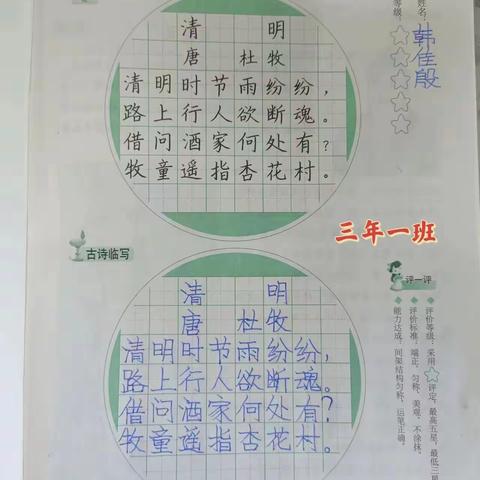 清 明
唐 杜牧
清明时节雨纷纷，
路上行人欲断魂。
借问酒家何处有？
牧童遥指杏花村。
姓名：
韩佳殷
等级：
三年一班
古诗临写
清 明
唐 杜牧
清明时节雨纷纷，
路上行人欲断魂。
借问酒家何处有？
牧童遥指杏花村。
评一评
评价等级：采用☆评定，最高五星，最低三星
评价标准：端正、匀称、美观、不涂抹。
能力达成：间架结构匀称，运笔正确。